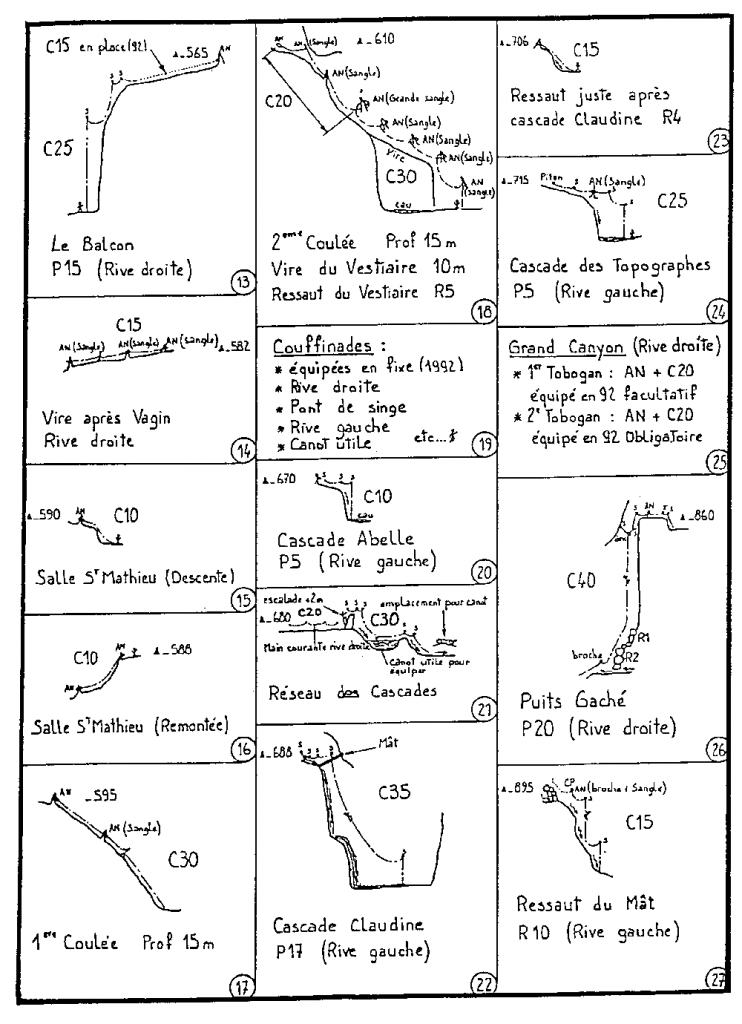 C15 en place (92)
-565
AN
S S
S
C25
Le Balcon
P15 (Rive droite)
13
C15
AN(Sangle) AN(Sangle) AN(Sangle) -582
Vire après Vagin
Rive droite
14
-590 AN C10
Salle St Mathieu (Descente)
15
C10 AN -588
AN
Salle St Mathieu (Remontée)
16
AN -595
AN(Sangle)
C30
1ere Coulée Prof 15m
17
AN AN (Sangle) -610
AN(Sangle)
C20
AN(Grande sangle)
AN(Sangle)
AN(Sangle)
Vire
AN(Sangle)
C30
AN
(Sangle)
eau
2eme Coulée Prof 15m
Vire du Vestiaire 10m
Ressaut du Vestiaire R5
18
Couffinades :
* équipées en fixe (1992)
* Rive droite
* Pont de singe
* Rive gauche
* Canot utile etc...
19
-670 S S S
C10
eau
Cascade Abelle
P5 (Rive gauche)
20
escalade +2m S S S emplacement pour canot
-680 C20 C30 S S
Main courante rive droite
Canot utile pour
équiper
Réseau des Cascades
21
Mât
-688 S S S S
C35
S
Cascade Claudine
P17 (Rive gauche)
22
-706 AN C15
Ressaut juste après
cascade Claudine R4
23
-715 Piton S AN(Sangle)
S
S
C25
Cascade des Topographes
P5 (Rive gauche)
24
Grand Canyon (Rive droite)
* 1er Tobogan : AN + C20
équipé en 92 facultatif
* 2e Tobogan : AN + C20
équipé en 92 Obligatoire
25
S AN S S -860
C40
R1
broche R2
Puits Gaché
P20 (Rive droite)
26
-895 CP AN(broche + Sangle)
S
C15
S
Ressaut du Mât
R10 (Rive gauche)
27